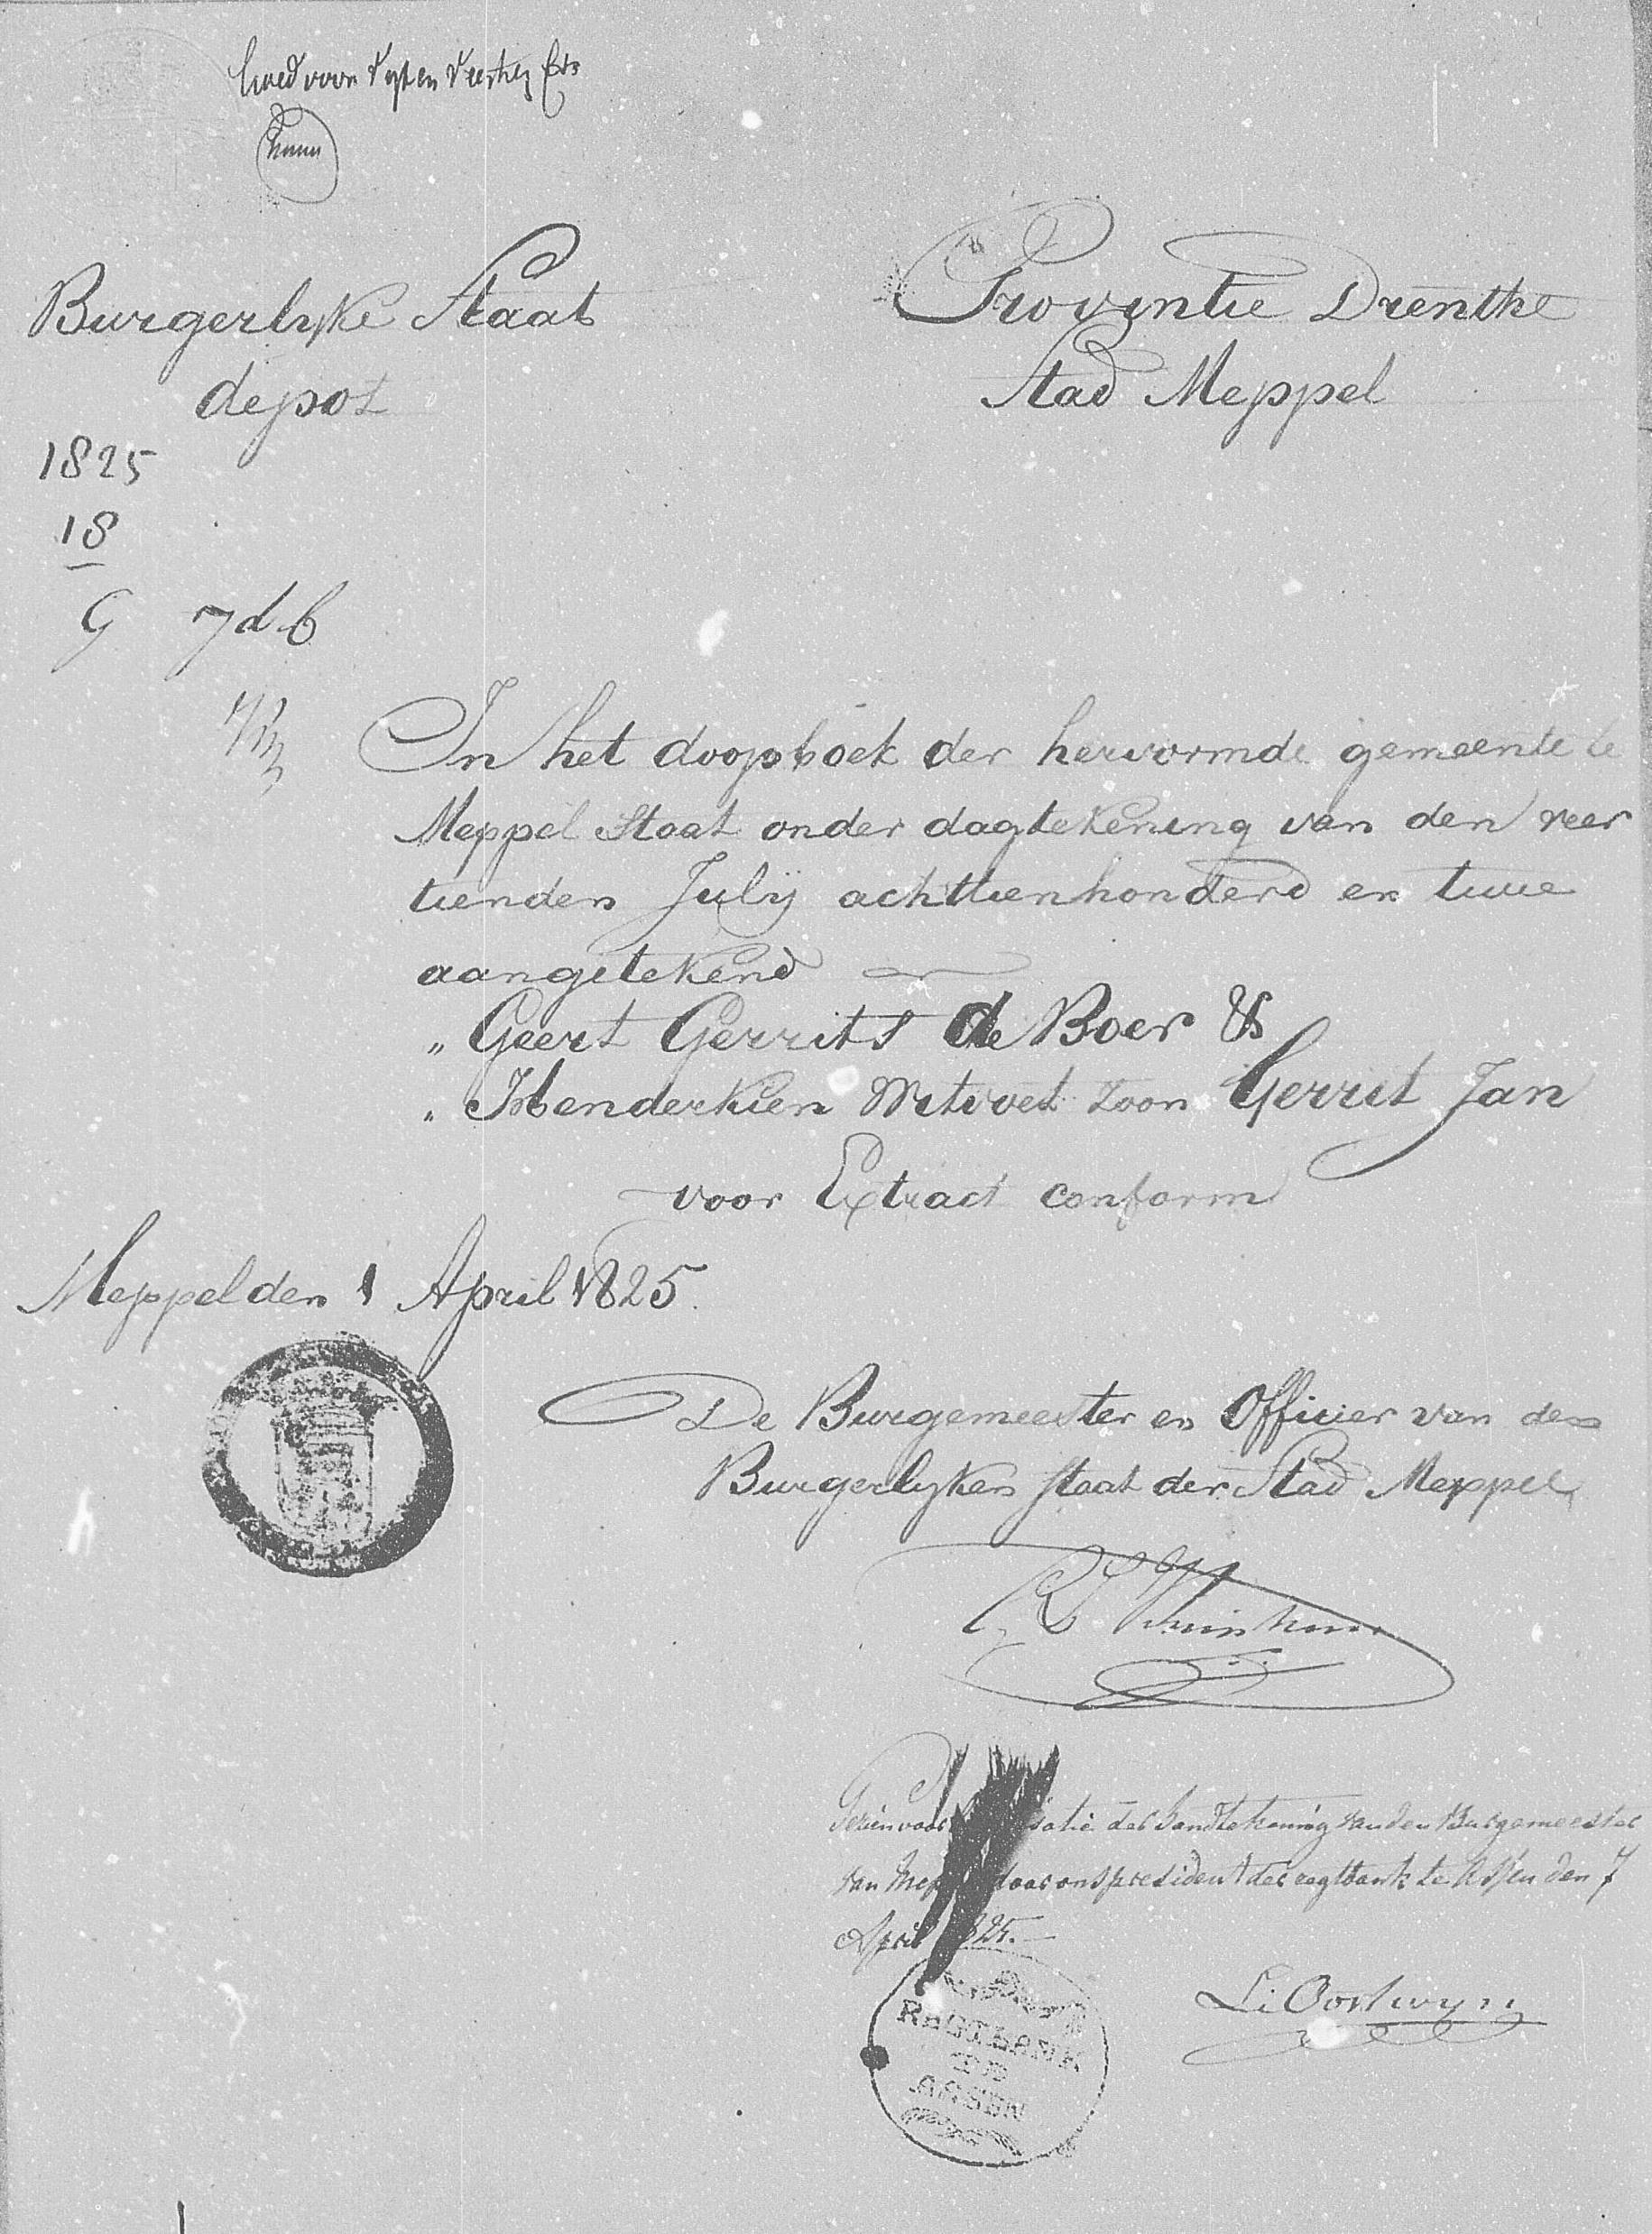 Goed voor Vyf en Veertig Cts
Burgerlyke Staat
depot
Provintie Drenthe
Stad Meppel
1825
18
G 7 d b
In het doopboek der hervormde gemeente te
Meppel Staat onder dagtekening van den veer
tienden July achttienhonderd en twee
aangetekend
„ Geert Gerrits de Boer &
„ Henderkien Witvoet zoon Gerrit Jan
voor Extract conform
Meppel den 1 April 1825.
De Burgemeester en Officier van den
Burgerlyken staat der Stad Meppel
Gezien voor satie der handtekening van den Burgemeester
van Mep door ons president der regtbank te Assen den 7
April 1825.
L: Oostwyn
REGTBANK
TE
ASSEN